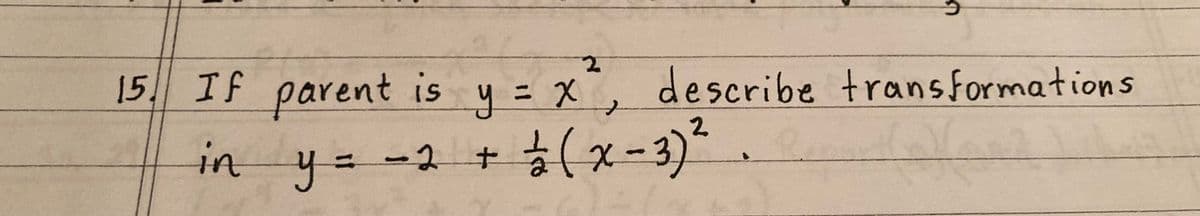 15. If parent is y = x², describe transformations
in y = -2 + ½(x-3)².